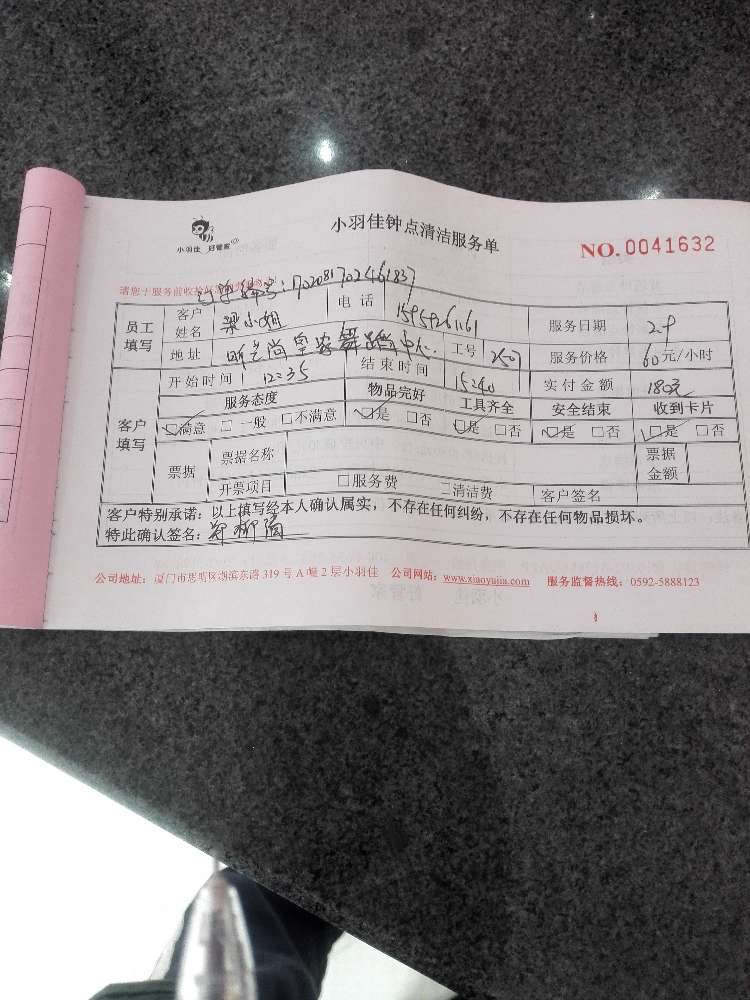 小羽佳 好管家
小羽佳钟点清洁服务单
NO. 0041632
请您于服务前收拾好
员工填写 客户姓名 梁小姐 电话 服务日期 2-9
地址 尚空 舞蹈中心 工号 服务价格 60元/小时
开始时间 12:35 结束时间 15:40 实付金额 180元
客户填写 服务态度 物品完好 工具齐全 安全结束 收到卡片
☑满意 □一般 □不满意 ☑是 □否 ☑是 □否 ☑是 □否 ☑是 □否
票据 票据名称 票据金额
开票项目 □服务费 □清洁费 客户签名
客户特别承诺：以上填写经本人确认属实，不存在任何纠纷，不存在任何物品损坏。
特此确认签名：郑柳
公司地址：厦门市思明区湖滨东路 319 号 A 幢 2 层小羽佳 公司网站：www.xiaoyujia.com 服务监督热线：0592-5888123